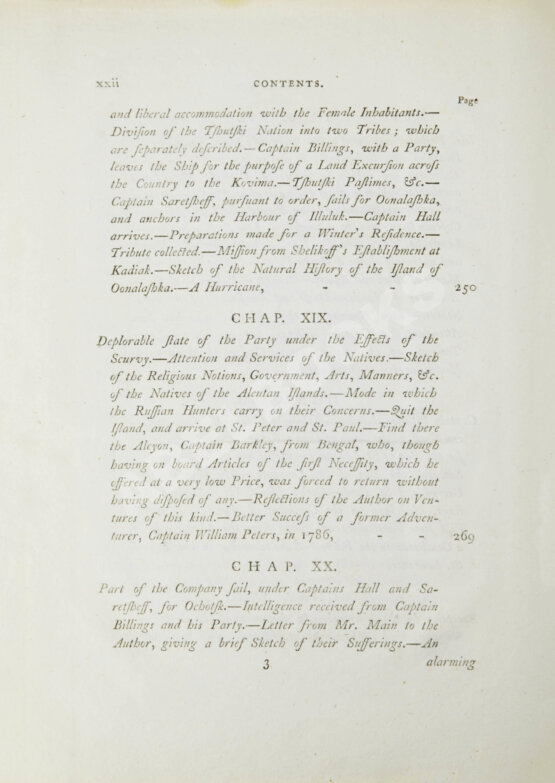 xxii CONTENTS.
Page
and liberal accommodation with the Female Inhabitants.—
Diviſion of the Tſhutſki Nation into two Tribes; which
are ſeparately deſcribed.—Captain Billings, with a Party,
leaves the Ship for the purpoſe of a Land Excurſion acroſs
the Country to the Kovima.—Tſhutſki Paſtimes, &c.—
Captain Saretſheff, purſuant to order, ſails for Oonalaſhka,
and anchors in the Harbour of Illuluk.—Captain Hall
arrives.—Preparations made for a Winter's Reſidence.—
Tribute collected.—Miſſion from Shelikoff's Eſtabliſhment at
Kadiak.—Sketch of the Natural Hiſtory of the Iſland of
Oonalaſhka.—A Hurricane, - - 250
CHAP. XIX.
Deplorable ſtate of the Party under the Effects of the
Scurvy.—Attention and Services of the Natives.—Sketch
of the Religious Notions, Government, Arts, Manners, &c.
of the Natives of the Aleutan Iſlands.—Mode in which
the Ruſſian Hunters carry on their Concerns.—Quit the
Iſland, and arrive at St. Peter and St. Paul.—Find there
the Alcyon, Captain Barkley, from Bengal, who, though
having on board Articles of the firſt Neceſſity, which he
offered at a very low Price, was forced to return without
having diſpoſed of any.—Reflections of the Author on Ven-
tures of this kind.—Better Succeſs of a former Adven-
turer, Captain William Peters, in 1786, - - 269
CHAP. XX.
Part of the Company ſail, under Captains Hall and Sa-
retſheff, for Ochotſk.—Intelligence received from Captain
Billings and his Party.—Letter from Mr. Main to the
Author, giving a brief Sketch of their Sufferings.—An
3 alarming